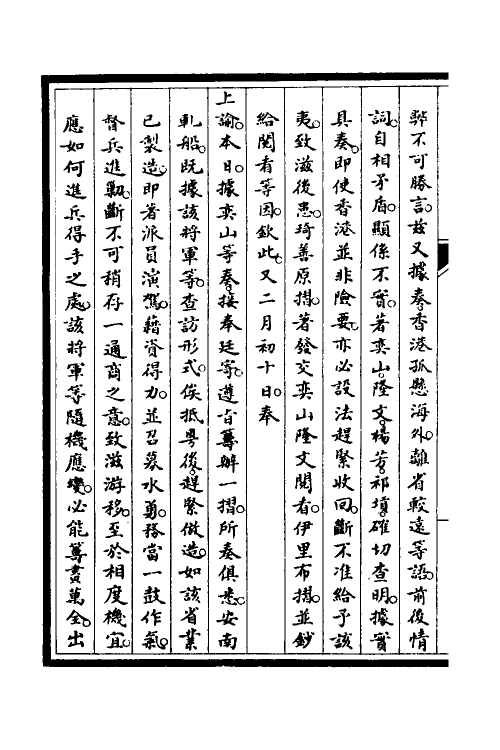 弊不可勝言。茲又據奏。香港孤懸海外。離省較遠等語。前後情
詞。自相矛盾。顯係不實。著奕山。隆文。楊芳。祁𡎴。確切查明。據實
具奏。即使香港並非險要。亦必設法趕緊收回。斷不准給予該
夷。致滋後患。琦善原摺。著發交奕山隆文閱看。伊里布摺。並鈔
給閱看等因。欽此。又二月初十日。奉
上諭。本日。據奕山等奏。接奉廷寄。遵旨籌辦一摺。所奏俱悉。安南
軋船。既據該將軍等。查訪形式。俟抵粵後。趕緊倣造。如該省業
已製造。即著派員演駕。藉資得力。並召募水勇。務當一鼓作氣。
督兵進剿。斷不可稍存一通商之意。致滋游移。至於相度機宜。
應如何進兵得手之處。該將軍等隨機應變。必能籌畫萬全。出